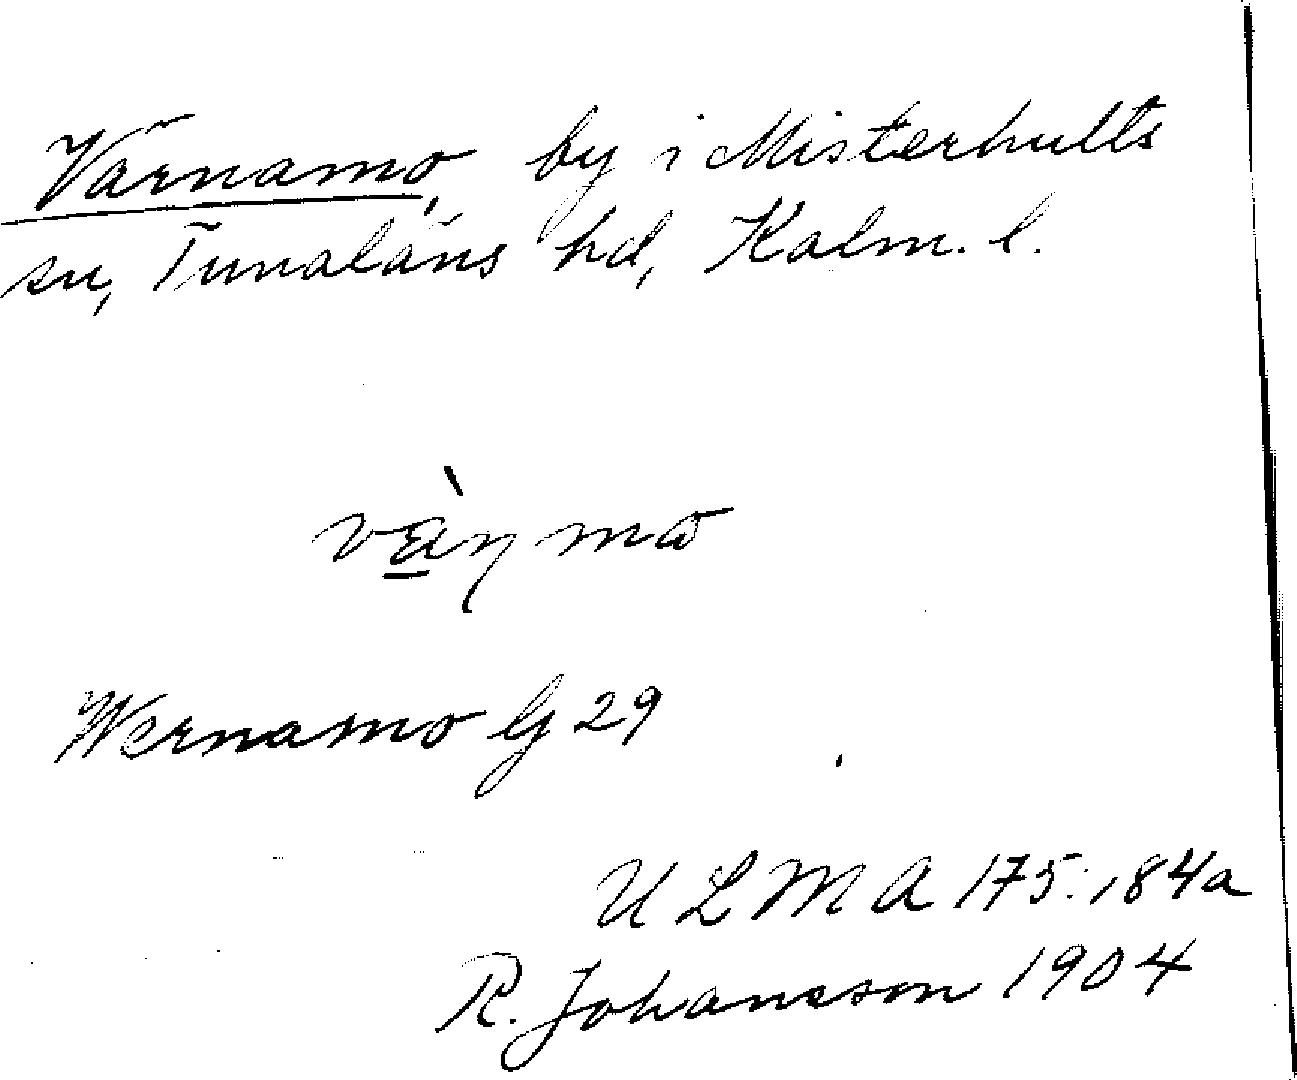 Värnamo, by i Misterhults
sn, Tunaläns hd, Kalm. l.
Wernamo Gj 29
ULMA 175:184a
R. Johansson 1904